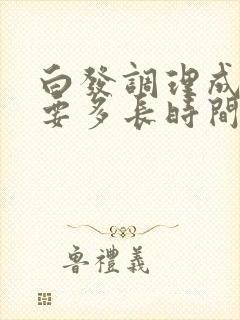 白發調理成
要多長時間
魯禮義